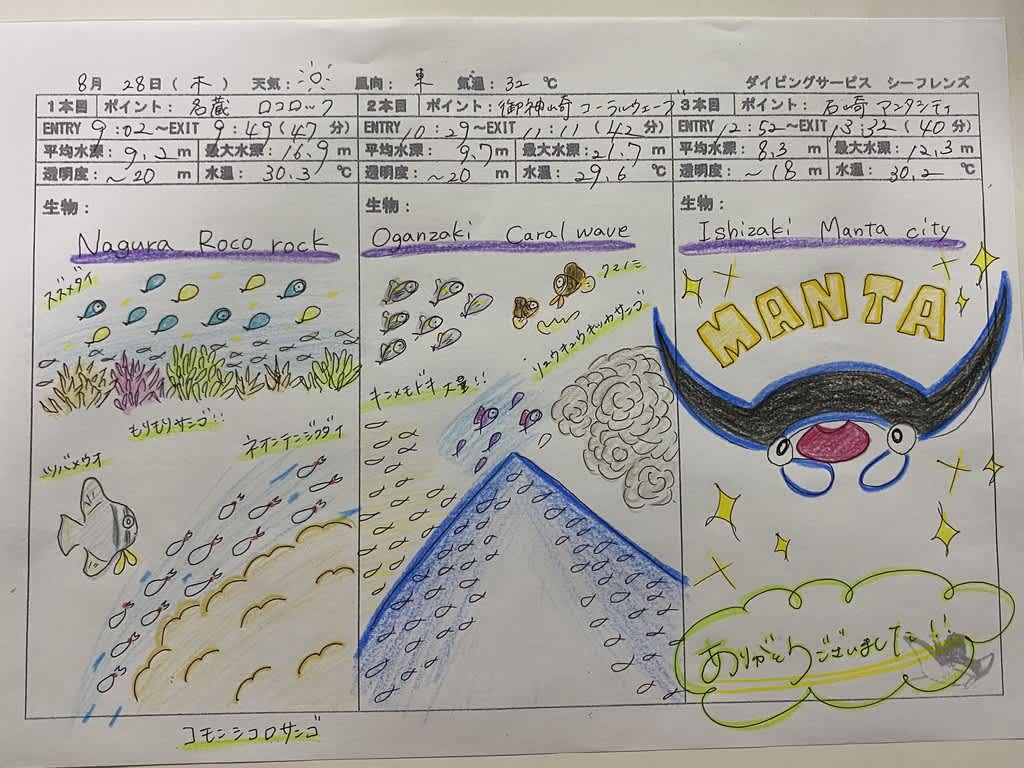 8月 28日(木) 天気: 風向: 東 気温: 32 ℃ ダイビングサービス シーフレンズ
1本目 ポイント: 名蔵 ロコロック
ENTRY 9:02~EXIT 9:49(47 分)
平均水深: 9.2 m 最大水深: 16.9 m
透明度: ~20 m 水温: 30.3 ℃
生物:
Nagura Roco rock
スズメダイ
もりもりサンゴ!!
ツバメウオ
ネオンテンジクダイ
コモンシコロサンゴ
2本目 ポイント: 御神崎 コーラルウェーブ
ENTRY 10:29~EXIT 11:11(42 分)
平均水深: 9.7 m 最大水深: 21.7 m
透明度: ~20 m 水温: 29.6 ℃
生物:
Oganzaki Caral wave
クマノミ
リュウキュウキッカサンゴ
キンメモドキ大量!!
3本目 ポイント: 石崎 マンタシティ
ENTRY 12:52~EXIT 13:32(40 分)
平均水深: 8.3 m 最大水深: 12.3 m
透明度: ~18 m 水温: 30.2 ℃
生物:
Ishizaki Manta city
MANTA
ありがとうございました!!